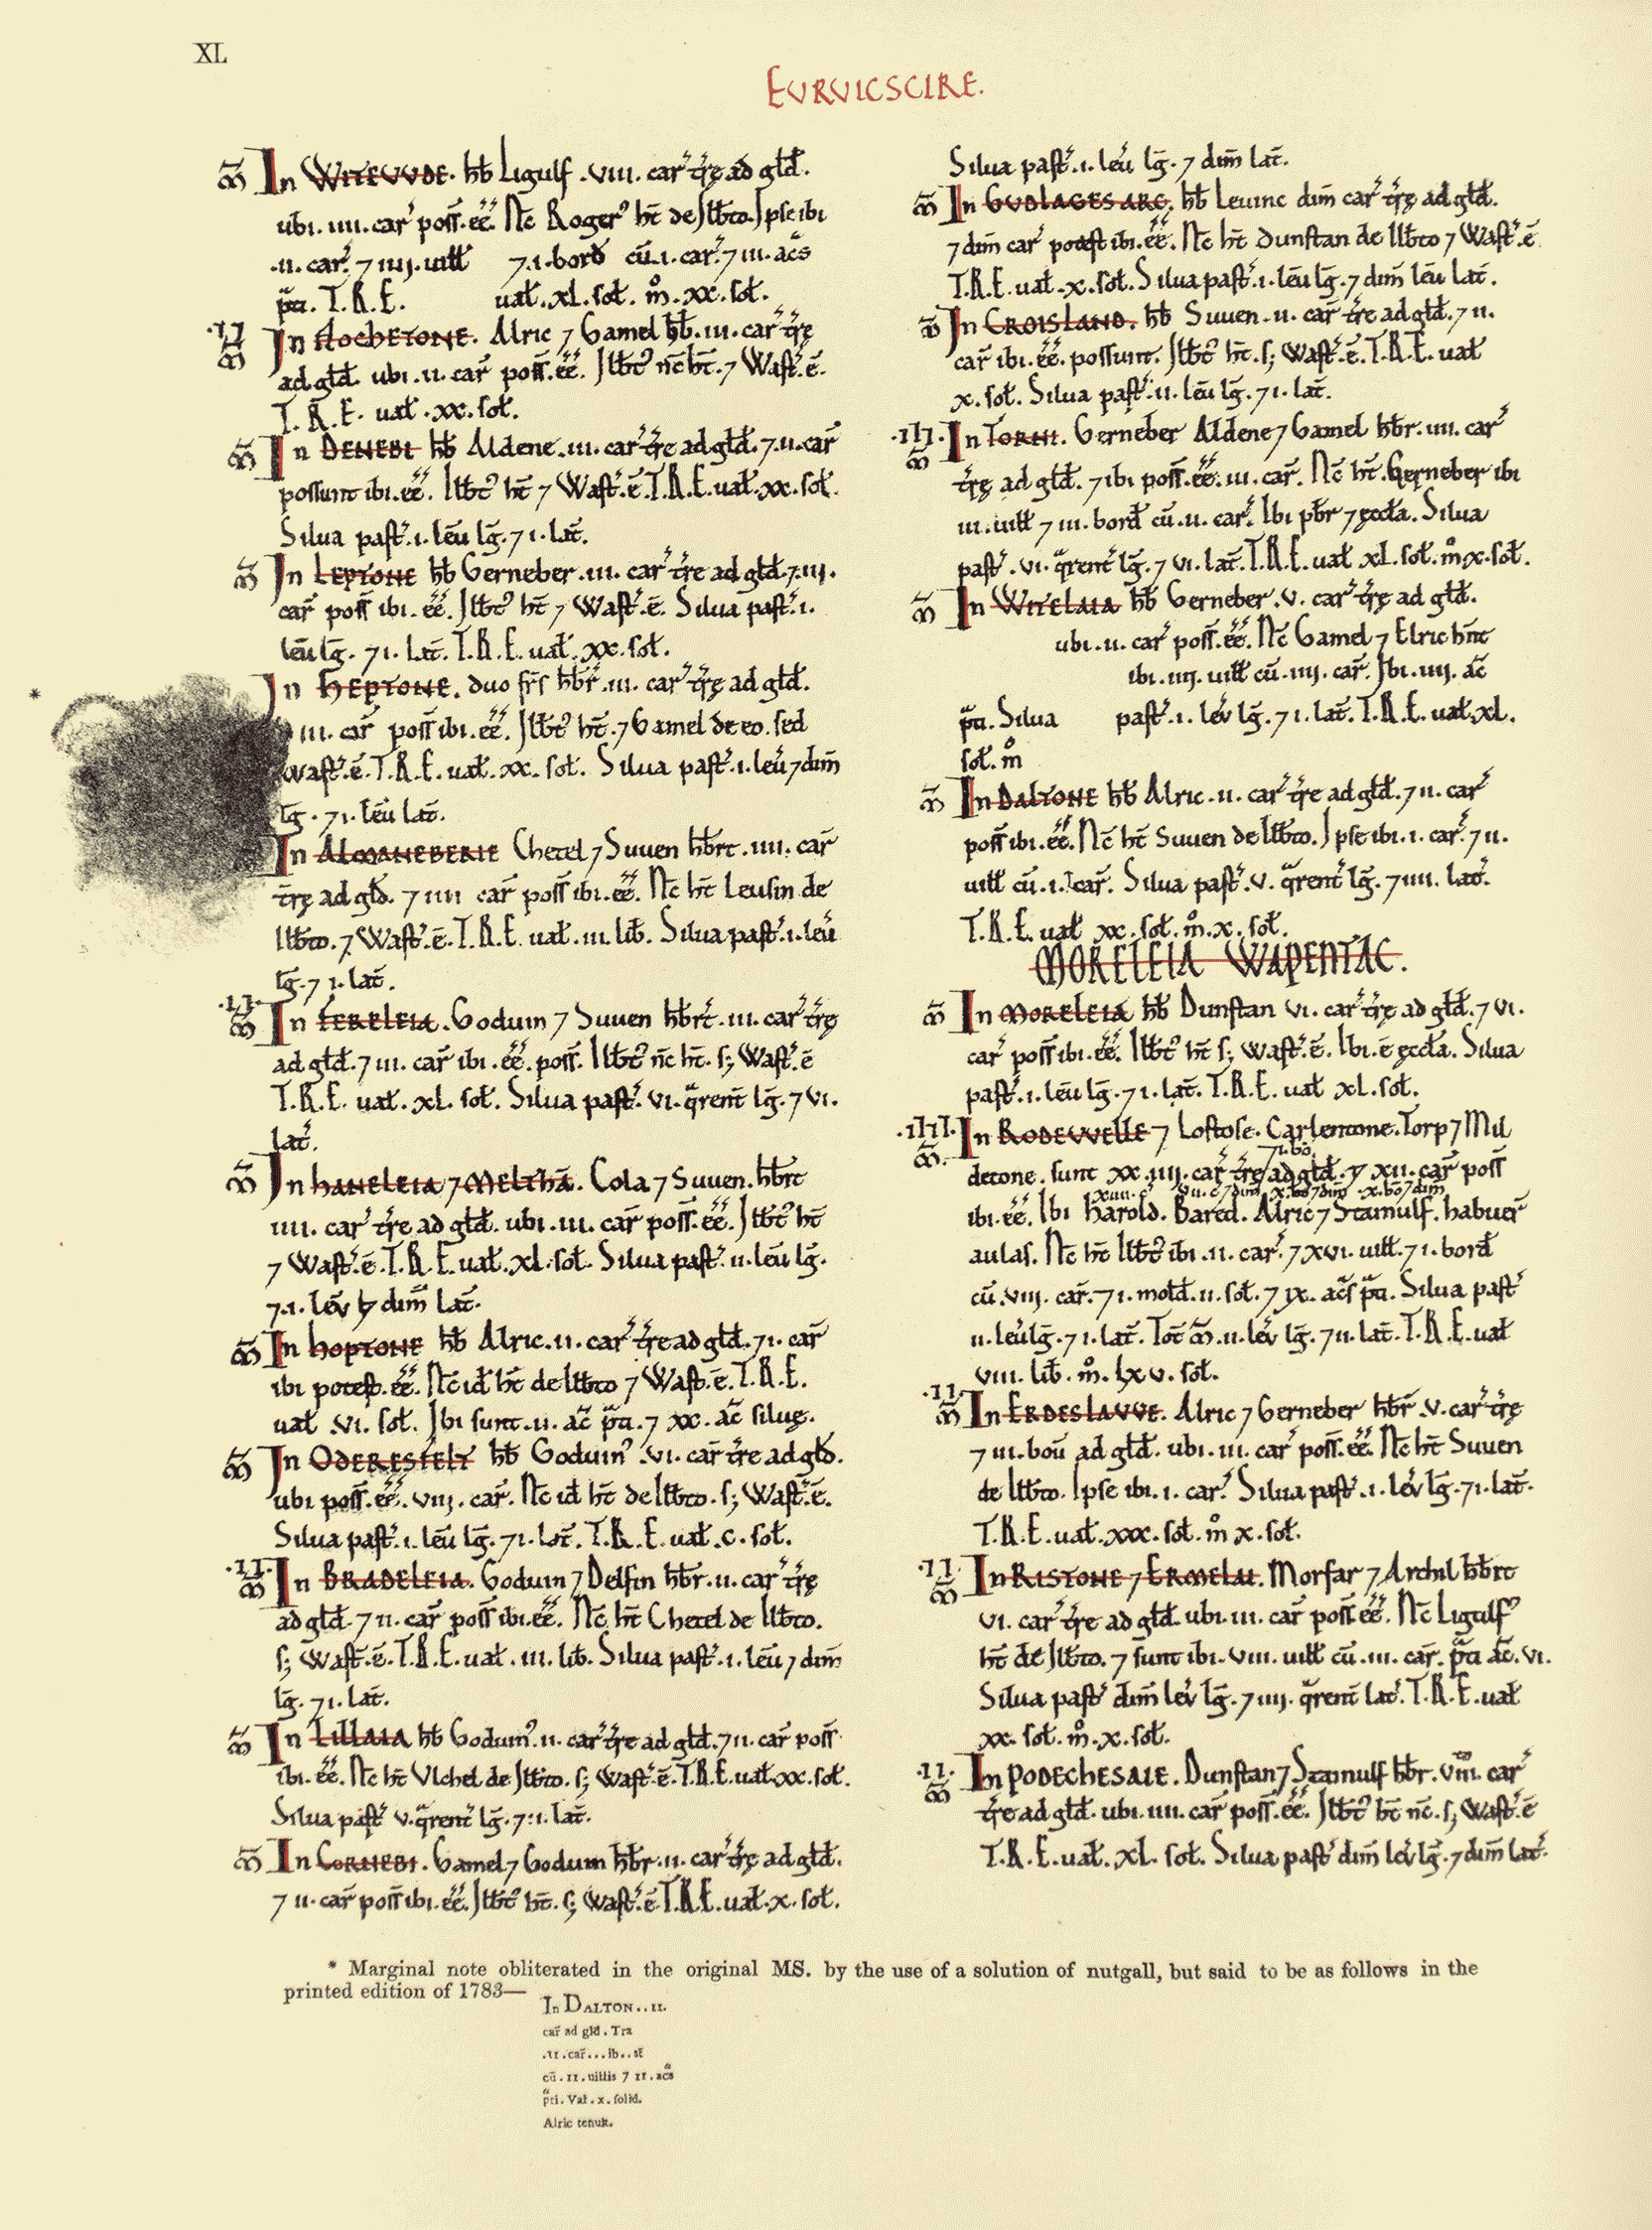 XL
EVRVICSCIRE.
M̄ In WITEVVDE. hb̄ Ligulf .VIII. car̄ tr̄ę ad gld̄.
ubi .IIII. car̄ poss̄.ēē. Nc̄ Roger⁹ ht̄ de Ilb̄to. Ipse ibi
.II. car̄. ⁊ IIIJ. uilł ⁊ .I. bord̄ cū .I. car̄. ⁊ III. ac̄s
p̄ti. T.R.E. uał .XL. soł. m̊ .XX. soł.
.II. M̄ In HOCHETONE. Alric ⁊ Gamel hb̄. III. car̄ tr̄ę
ad gld̄. ubi .II. car̄ poss̄.ēē. Ilb̄t⁹ nc̄ ht̄. ⁊ Wast̄.ē.
T.R.E. uał .XX. soł.
M̄ In DENEBI hb̄ Aldene .III. car̄ tr̄ę ad gld̄. ⁊ .II. car̄
possunt ibi .ēē. Ilb̄t⁹ ht̄ ⁊ Wast̄.ē. T.R.E. uał .XX. soł.
Silua past̄ .I. leū lḡ. ⁊ I. lat̄.
M̄ In LEPTONE hb̄ Gerneber .III. car̄ tr̄ę ad gld̄. ⁊ .IIJ.
car̄ poss̄ ibi .ēē. Ilb̄t⁹ ht̄ ⁊ Wast̄.ē. Silua past̄ .I.
leū lḡ. ⁊ I. Lat̄. T.R.E. uał .XX. soł.
*
In HEPTONE. duo fr̄s hb̄r .III. car̄ tr̄ę ad gld̄.
III. car̄ poss̄ ibi .ēē. Ilb̄t⁹ ht̄. ⁊ Gamel de eo. sed
Wast̄.ē. T.R.E. uał .XX. soł. Silua past̄ .I. leū ⁊ dim̄
lḡ. ⁊ I. leū lat̄.
In ALMANEBERIE Chetel ⁊ Suuen hb̄rt .IIII. car̄
tr̄ę ad gld̄. ⁊ IIII car̄ poss̄ ibi .ēē. Nc̄ ht̄ Leusin de
Ilb̄to. ⁊ Wast̄.ē. T.R.E. uał .III. lib̄. Silua past̄ .I. leū
lḡ. ⁊ I. lat̄.
.II. M̄ In FERELEIA. Goduin ⁊ Suuen hb̄rt .III. car̄ tr̄ę
ad gld̄. ⁊ III. car̄ ibi .ēē. poss̄. Ilb̄t⁹ nc̄ ht̄. s; Wast̄.ē
T.R.E. uał. XL. soł. Silua past̄. VI. q̄rent lḡ. ⁊ VI.
lat̄.
M̄ In HANELEIA ⁊ MELTHĀ. Cola ⁊ Suuen. hb̄rt
IIII. car̄ tr̄ę ad gld̄. ubi .III. car̄ poss̄.ēē. Ilb̄t⁹ ht̄
⁊ Wast̄.ē. T.R.E. uał .XL. soł. Silua past̄. II. leū lḡ.
⁊ .I. lev̄ ⁊ dim̄ Lat̄.
M̄ In HOPTONE hb̄ Alric .II. car̄ tr̄ę ad gld̄. ⁊ I. car̄
ibi potest .ēē. Nc̄ id̄ ht̄ de Ilb̄to ⁊ Wast̄.ē. T.R.E.
uał .VI. soł. Ibi sunt .II. ac̄ p̄ti. ⁊ XX. ac̄ siluę.
M̄ In ODERESFELT hb̄ Goduin⁹ .VI. car̄ tr̄ę ad gld̄.
ubi poss̄.ēē. VIIJ. car̄. Nc̄ id̄ ht̄ de Ilb̄to. s; Wast̄.ē.
Silua past̄. I. leū lḡ. ⁊ I. Lat̄. T.R.E. uał .C. soł.
.II. M̄ In BRADELEIA. Goduin ⁊ Delfin hb̄r .II. car̄ tr̄ę
ad gld̄. ⁊ II. car̄ poss̄ ibi .ēē. Nc̄ ht̄ Chetel de Ilb̄to.
s; Wast̄.ē. T.R.E. uał. III. lib̄. Silua past̄ .I. leū ⁊ dim̄
lḡ. ⁊ I. lat̄.
M̄ In LILLAIA hb̄ Goduin⁹ .II. car̄ tr̄ę ad gld̄. ⁊ II. car̄ poss̄
ibi .ēē. Nc̄ ht̄ Vlchel de Ilb̄to. s; Wast̄.ē. T.R.E. uał .XX. soł.
Silua past̄ V. q̄rent lḡ. ⁊ .I. lat̄.
M̄ In CORNEBI. Gamel ⁊ Goduin hb̄r .II. car̄ tr̄ę ad gld̄.
⁊ II. car̄ poss̄ ibi .ēē. Ilb̄t⁹ ht̄. s; Wast̄.ē. T.R.E. uał .X. soł.
Silua past̄ .I. leū lḡ. ⁊ dim̄ lat̄.
M̄ In GVDLAGESARC. hb̄ Leuinc dim̄ car̄ tr̄ę ad gld̄.
⁊ dim̄ car̄ potest ibi .ēē. Nc̄ ht̄ Dunstan de Ilb̄to ⁊ Wast̄.ē.
T.R.E. uał .X. soł. Silua past̄ .I. leū lḡ. ⁊ dim̄ leū Lat̄.
M̄ In CROISLAND. hb̄ Suuen .II. car̄ tr̄ę ad gld̄. ⁊ II.
car̄ ibi .ēē. possunt. Ilb̄t⁹ ht̄. s; Wast̄.ē. T.R.E. uał
X. soł. Silua past̄ .II. leū lḡ. ⁊ I. lat̄.
.III. M̄ In TORNI. Gerneber Aldene ⁊ Gamel hb̄r .IIII. car̄
tr̄ę ad gld̄. ⁊ ibi poss̄.ēē. III. car̄. Nc̄ ht̄ Gerneber ibi
III. uilł ⁊ III. bord̄ cū .II. car̄. Ibi pb̄r ⁊ ęccła. Silua
past̄ .VI. q̄rent lḡ. ⁊ VI. lat̄. T.R.E. uał XL. soł. m̊ .X. soł.
M̄ In WITELAIA hb̄ Gerneber .V. car̄ tr̄ę ad gld̄.
ubi .II. car̄ poss̄.ēē. Nc̄ Gamel ⁊ Elric hn̄t
ibi .IIIJ. uilł cū .IIIJ. car̄. Ibi .IIIJ. ac̄
p̄ti. Silua past̄ .I. lev̄ lḡ. ⁊ I. lat̄. T.R.E. uał .XL.
soł. m̊
M̄ In DALTONE hb̄ Alric .II. car̄ tr̄ę ad gld̄. ⁊ II. car̄
poss̄ ibi .ēē. Nc̄ ht̄ Suuen de Ilb̄to. Ipse ibi .I. car̄. ⁊ II.
uilł cū .I. car̄. Silua past̄ .V. q̄rent lḡ. ⁊ IIII. lat̄.
T.R.E. uał XX. soł. m̊ .X. soł.
MORELEIA WAPENTAC.
M̄ In MORELEIA hb̄ Dunstan VI. car̄ tr̄ę ad gld̄. ⁊ VI.
car̄ poss̄ ibi .ēē. Ilb̄t⁹ ht̄ s; Wast̄.ē. Ibi .ē ęccła. Silua
past̄ .I. leū lḡ. ⁊ I. lat̄. T.R.E. uał XL. soł.
.IIII. M̄. In RODEWELLE ⁊ Loftose. Carlentone. Torp ⁊ Mil
detone. sunt XX.IIIJ. car̄ tr̄ę ⁊ .I. bo. ad gld̄. ⁊ XII. car̄ poss̄
ibi .ēē. Ibi Harold. Bared. Alric ⁊ Stainulf. habuer̄
aulas. Nc̄ ht̄ Ilb̄t⁹ ibi .II. car̄. ⁊ XVI. uilł. ⁊ I. bord̄
cū .VIIJ. car̄. ⁊ I. mold̄ .II. soł. ⁊ IX. ac̄s p̄ti. Silua past̄
II. leū lḡ. ⁊ I. lat̄. Tot̄ M̄ .II. lev̄ lḡ. ⁊ II. Lat̄. T.R.E. uał
VIII. lib̄. m̊. LXV. soł.
.II. M̄ In ERDESLAVVE. Alric ⁊ Gerneber hb̄r .V. car̄ tr̄ę
⁊ III. boū ad gld̄. ubi .III. car̄ poss̄.ēē. Nc̄ ht̄ Suuen
de Ilb̄to. Ipse ibi .I. car̄. Silua past̄ .I. lev̄ lḡ. ⁊ I. lat̄.
T.R.E. uał .XXX. soł. m̊ X. soł.
.II. M̄ In RISTONE ⁊ ERMELAI. Morfar ⁊ Archil hb̄rt
VI. car̄ tr̄ę ad gld̄. ubi .III. car̄ poss̄.ēē. Nc̄ Ligulf⁹
ht̄ de Ilb̄to. ⁊ sunt ibi. VIII. uilł cū .III. car̄. p̄ti ac̄. VI.
Silua past̄ dim̄ lev̄ lḡ. ⁊ IIIJ. q̄rent lat̄. T.R.E. uał
XX. soł. m̊. X. soł.
.II. M̄ In PODECHESAIE. Dunstan ⁊ Stainulf hb̄r. VIII. car̄
tr̄ę ad gld̄. ubi .IIII. car̄ poss̄.ēē. Ilb̄t⁹ ht̄ nc̄. s; Wast̄.ē
T.R.E. uał. XL. soł. Silua past̄ dim̄ lev̄ lḡ. ⁊ dim̄ lat̄.
* Marginal note obliterated in the original MS. by the use of a solution of nutgall, but said to be as follows in the
printed edition of 1783—
In DALTON..II.
car̄ ad gld̄. Tra
.II. car̄...ib..st̄
cū .II. uillis ⁊ II. acs̄
p̄ti. Vał. x. solid.
Alric tenuit.